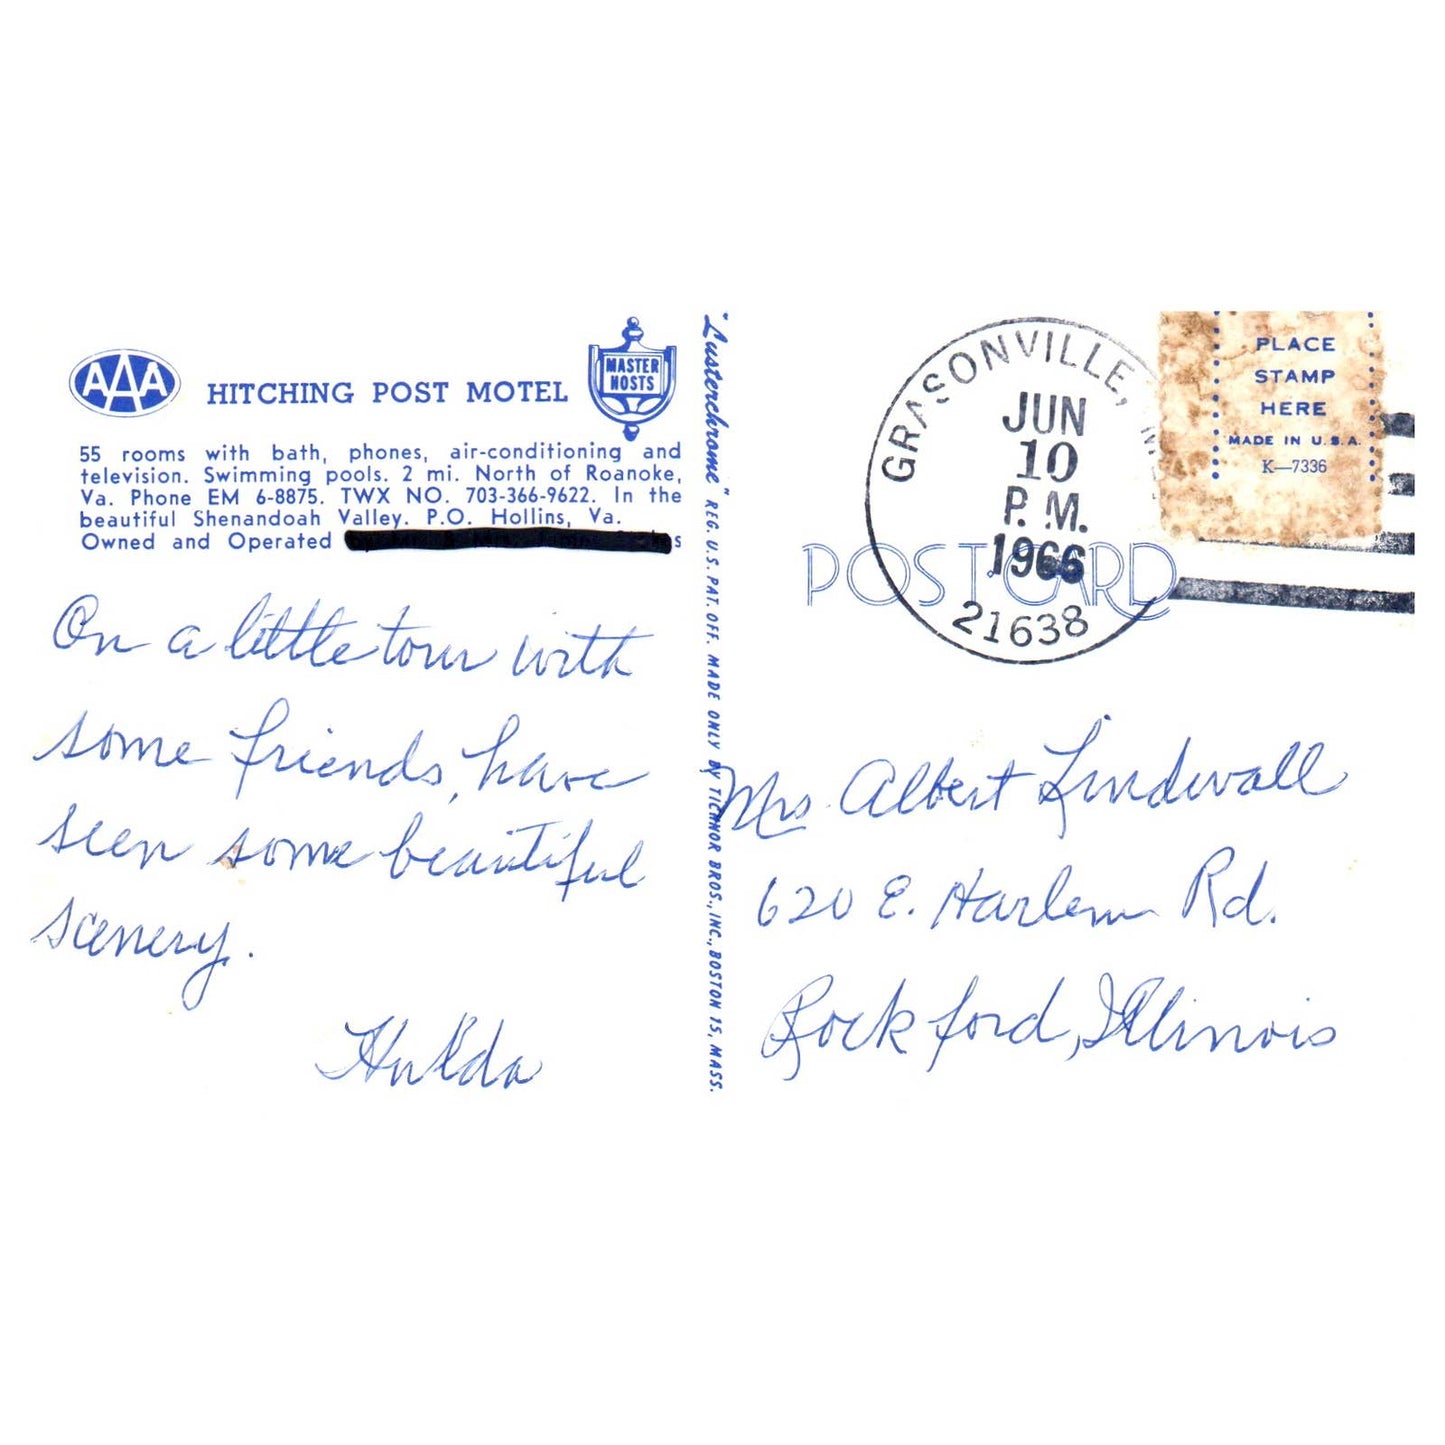 AAA
HITCHING POST MOTEL
MASTER
HOSTS
55 rooms with bath, phones, air-conditioning and
television. Swimming pools. 2 mi. North of Roanoke,
Va. Phone EM 6-8875. TWX NO. 703-366-9622. In the
beautiful Shenandoah Valley. P.O. Hollins, Va.
Owned and Operated
On a little tour with
some friends, have
seen some beautiful
scenery.
Hulda
"Lusterchrome" REG. U.S. PAT. OFF. MADE ONLY BY TICHNOR BROS., INC., BOSTON 15, MASS.
GRASONVILLE,
JUN
10
P. M.
1966
21638
PLACE
STAMP
HERE
MADE IN U.S.A.
K—7336
POST CARD
Mrs. Albert Lindwall
620 E. Harlem Rd.
Rockford, Illinois